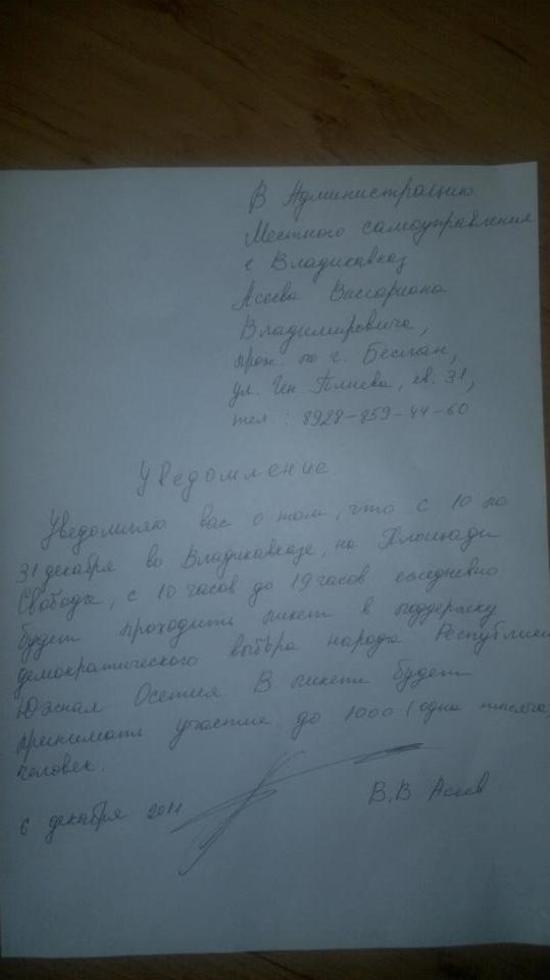 В Администрацию
Местного самоуправления
г Владикавказ
Асеева Виссариона
Владимировича,
прож. по г. Беслан,
ул. Ген Плиева, кв. 31,
тел : 8928-859-44-60
Уведомление
Уведомляю вас о том, что с 10 по
31 декабря во Владикавказе, на Площади
Свободы, с 10 часов до 19 часов ежедневно
будет проходить пикет в поддержку
демократического выбора народа Республики
Южная Осетия. В пикете будет
принимать участие до 1000 (одна тысяча)
человек.
6 декабря 2011
В.В Асеев